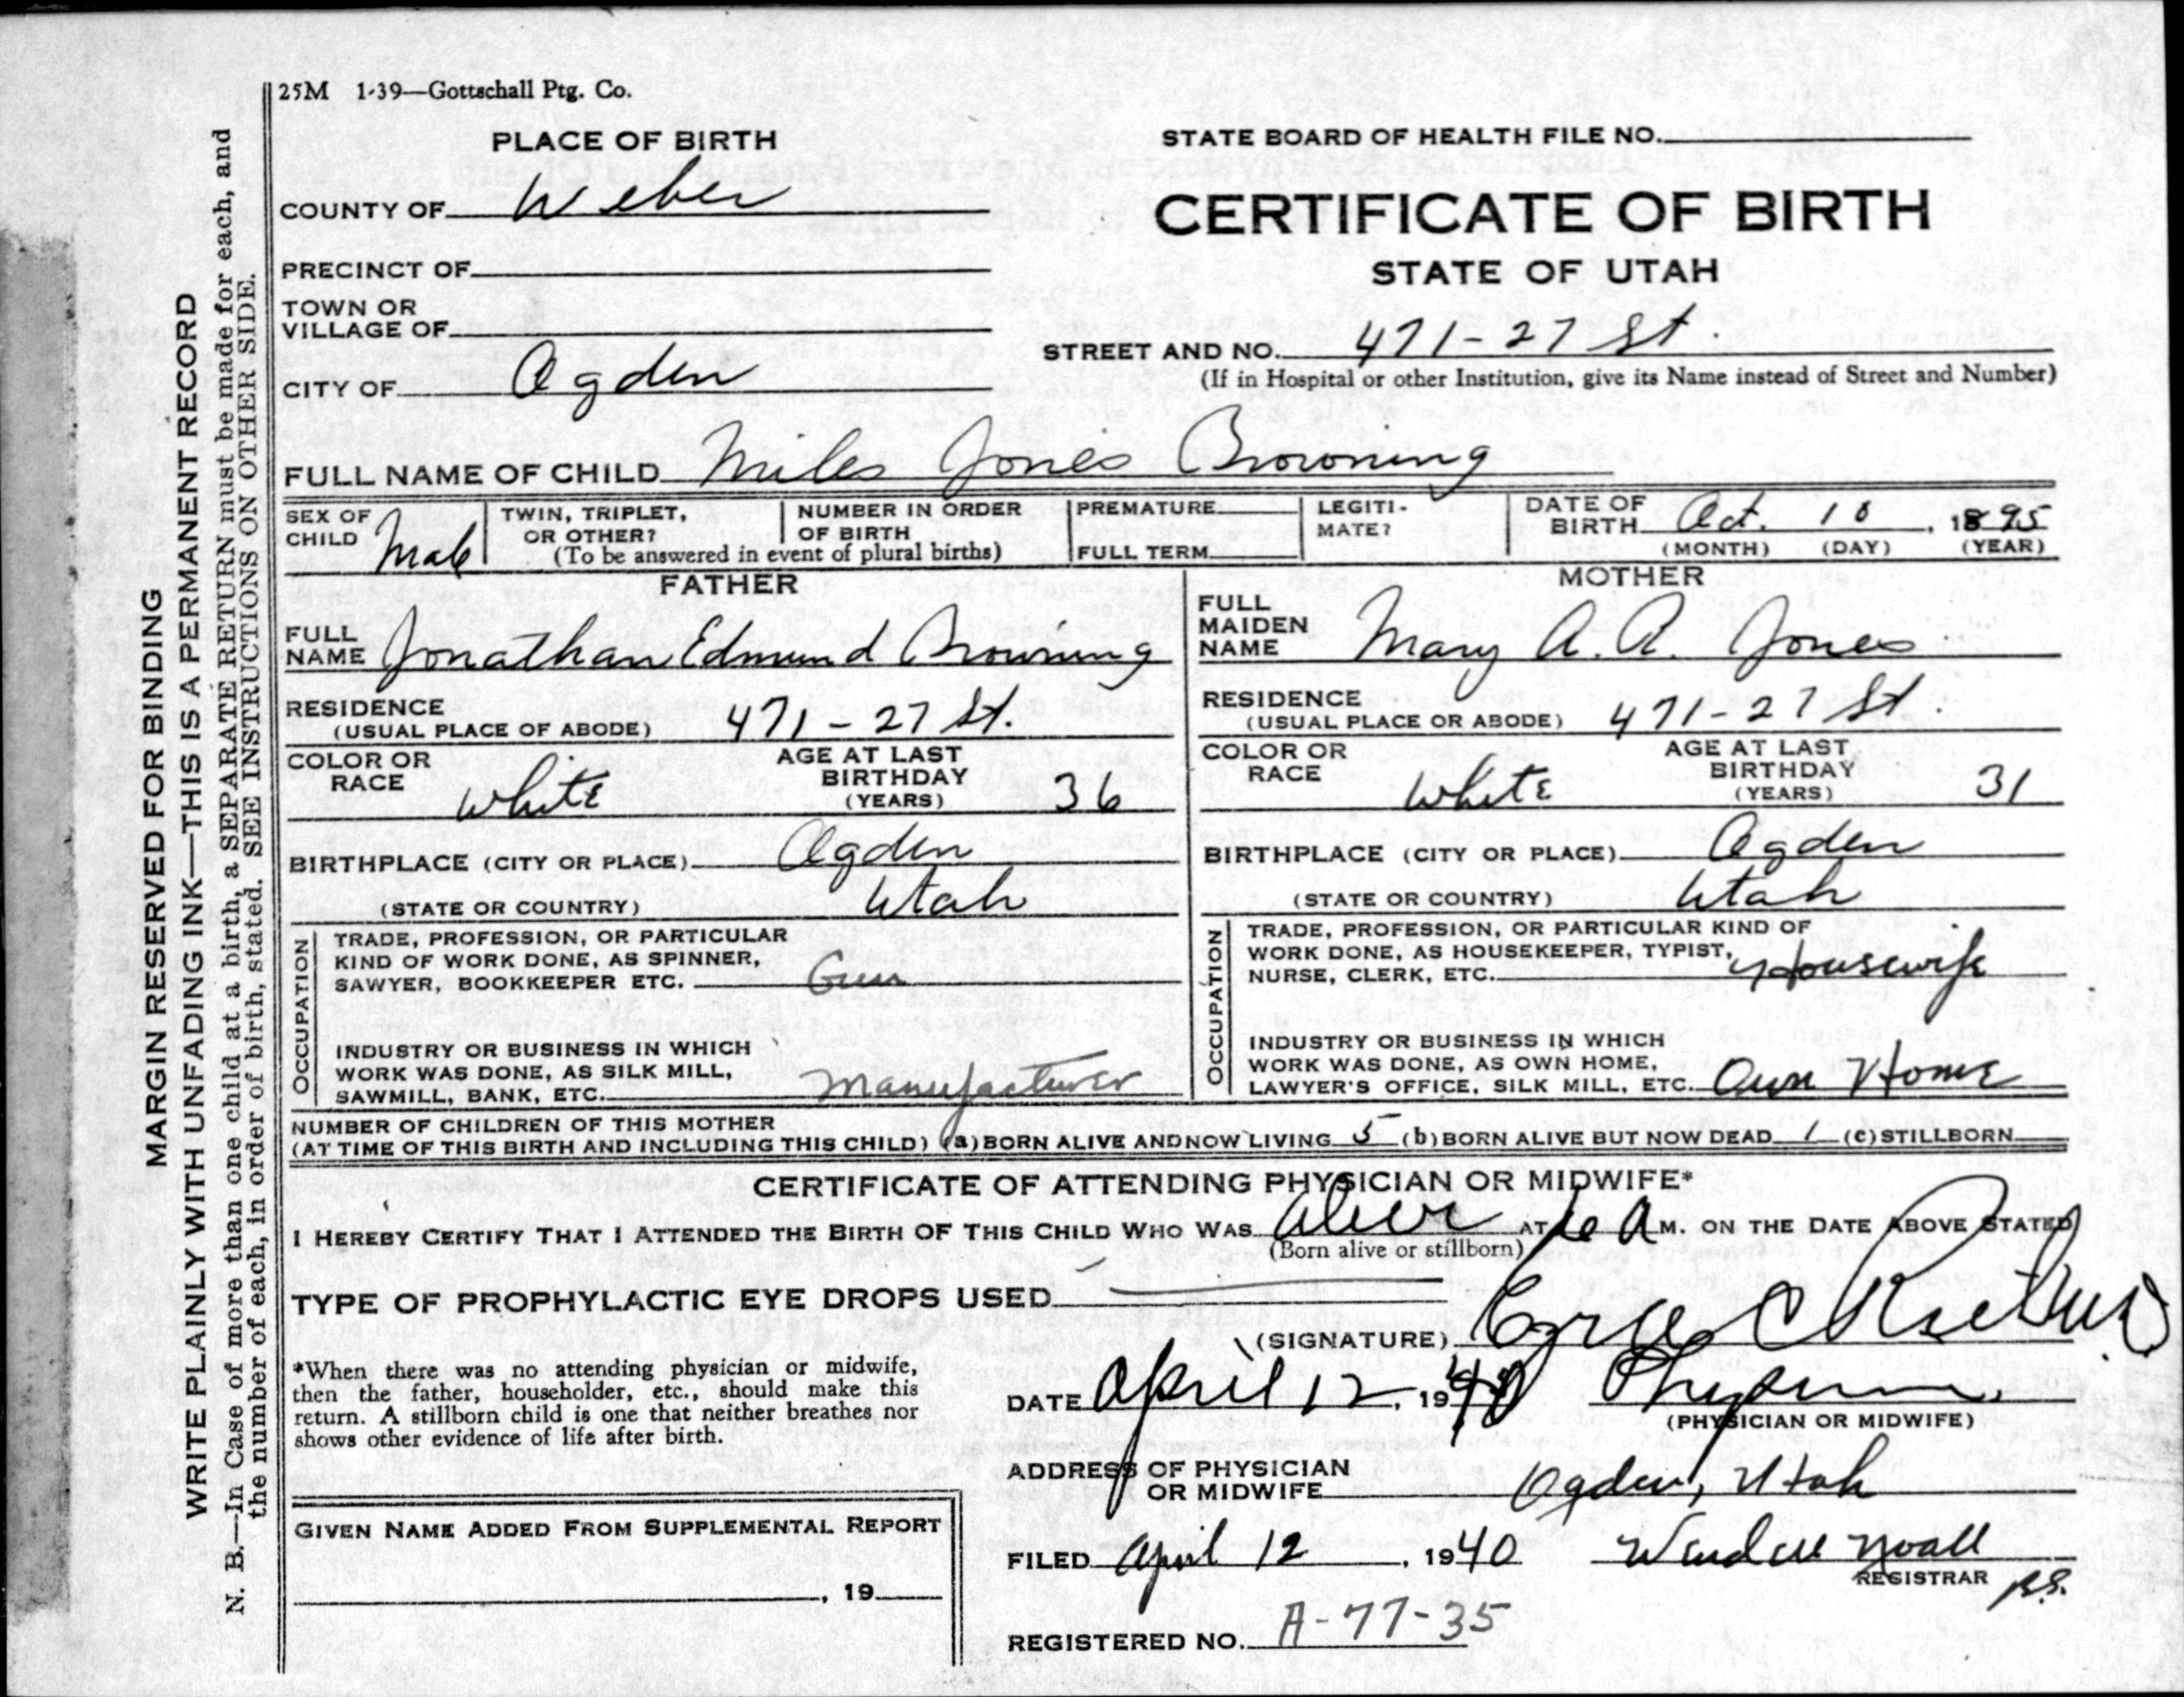 25M 1-39—Gottschall Ptg. Co.
MARGIN RESERVED FOR BINDING
WRITE PLAINLY WITH UNFADING INK—THIS IS A PERMANENT RECORD
N. B.—In Case of more than one child at a birth, a SEPARATE RETURN must be made for each, and
the number of each, in order of birth, stated. SEE INSTRUCTIONS ON OTHER SIDE.
PLACE OF BIRTH
COUNTY OF Weber
PRECINCT OF
TOWN OR
VILLAGE OF
CITY OF Ogden
STATE BOARD OF HEALTH FILE NO.
CERTIFICATE OF BIRTH
STATE OF UTAH
STREET AND NO. 471-27 St.
(If in Hospital or other Institution, give its Name instead of Street and Number)
FULL NAME OF CHILD Miles Jones Browning
SEX OF
CHILD Male
TWIN, TRIPLET,
OR OTHER?
NUMBER IN ORDER
OF BIRTH
(To be answered in event of plural births)
PREMATURE
FULL TERM
LEGITI-
MATE?
DATE OF
BIRTH Oct. 10, 1895
(MONTH) (DAY) (YEAR)
FATHER
FULL
NAME Jonathan Edmund Browning
RESIDENCE
(USUAL PLACE OF ABODE) 471-27 St.
COLOR OR
RACE White
AGE AT LAST
BIRTHDAY
(YEARS) 36
BIRTHPLACE (CITY OR PLACE) Ogden
(STATE OR COUNTRY) Utah
OCCUPATION
TRADE, PROFESSION, OR PARTICULAR
KIND OF WORK DONE, AS SPINNER,
SAWYER, BOOKKEEPER ETC. Gun
INDUSTRY OR BUSINESS IN WHICH
WORK WAS DONE, AS SILK MILL,
SAWMILL, BANK, ETC. Manufacturer
MOTHER
FULL
MAIDEN
NAME Mary A. A. Jones
RESIDENCE
(USUAL PLACE OR ABODE) 471-27 St.
COLOR OR
RACE White
AGE AT LAST
BIRTHDAY
(YEARS) 31
BIRTHPLACE (CITY OR PLACE) Ogden
(STATE OR COUNTRY) Utah
OCCUPATION
TRADE, PROFESSION, OR PARTICULAR KIND OF
WORK DONE, AS HOUSEKEEPER, TYPIST,
NURSE, CLERK, ETC. Housewife
INDUSTRY OR BUSINESS IN WHICH
WORK WAS DONE, AS OWN HOME,
LAWYER'S OFFICE, SILK MILL, ETC. Own Home
NUMBER OF CHILDREN OF THIS MOTHER
(AT TIME OF THIS BIRTH AND INCLUDING THIS CHILD) (a) BORN ALIVE AND NOW LIVING 5 (b) BORN ALIVE BUT NOW DEAD 1 (c) STILLBORN
CERTIFICATE OF ATTENDING PHYSICIAN OR MIDWIFE*
I HEREBY CERTIFY THAT I ATTENDED THE BIRTH OF THIS CHILD WHO WAS alive AT 6 A M. ON THE DATE ABOVE STATED
(Born alive or stillborn)
TYPE OF PROPHYLACTIC EYE DROPS USED
(SIGNATURE)
*When there was no attending physician or midwife,
then the father, householder, etc., should make this
return. A stillborn child is one that neither breathes nor
shows other evidence of life after birth.
DATE April 12, 1940 Physician
(PHYSICIAN OR MIDWIFE)
ADDRESS OF PHYSICIAN
OR MIDWIFE Ogden, Utah
GIVEN NAME ADDED FROM SUPPLEMENTAL REPORT
, 19
FILED April 12, 1940 Wendell Noall
REGISTRAR
REGISTERED NO. A-77-35